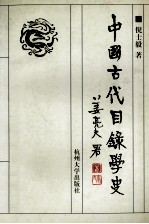 倪士毅 著
中國古代目錄學史
姜亮夫署
杭州大学出版社